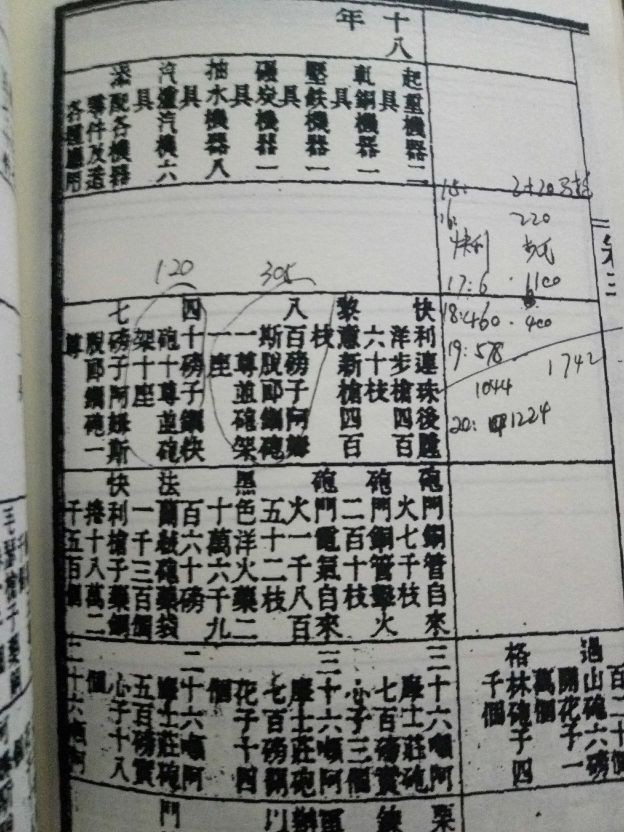 十八
年
起重機器二
具
軋銅機器一
具
壓鉄機器一
具
碾炭機器一
具
抽水機器八
具
汽爐汽機六
具
添配各機器
零件及造
各種應用
15:
2420
16:
220
快利
17:6
1100
18:460
400
19:578
1742
1044
20:
1224
305
120
快利連珠後膛
洋步槍四百
六十枝
黎意新槍四百
枝
八百磅子阿姆
斯脫郎鋼砲
一尊並砲架
一座
四十磅子鋼快
砲十尊並砲
架十座
七磅子阿姆斯
脫郎鋼砲一
尊
砲門銅管自來
火七千枝
砲門銅管擊火
二百十枝
砲門電氣自來
火一千八百
五十二枝
黑色洋火藥二
十萬六千九
百六十磅
法蘭絨砲藥袋
一千三百個
快利槍子藥銅
捲十八萬二
千五百個
百二十個
過山砲六磅
開花子一
萬個
格林砲子四
千個
三十六噸阿
摩士莊砲
七百磅實
心子三個
三十六噸阿
摩士莊砲
七百磅開
花子十四
個
二十六噸阿
摩士莊砲
五百磅實
心子十八
個
二十六噸阿